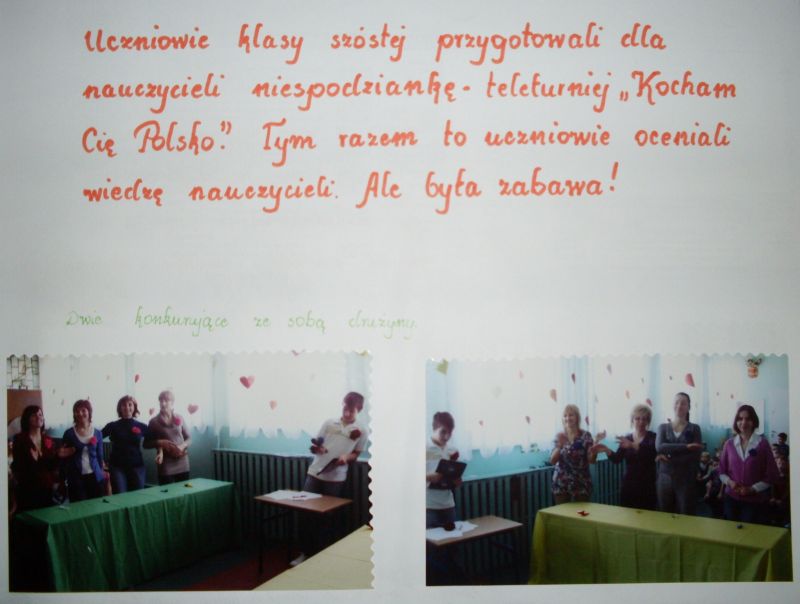 Uczniowie klasy szóstej przygotowali dla
nauczycieli niespodziankę - teleturniej „Kocham
Cię Polsko". Tym razem to uczniowie oceniali
wiedzę nauczycieli. Ale była zabawa!
Dwie konkurujące ze sobą drużyny.